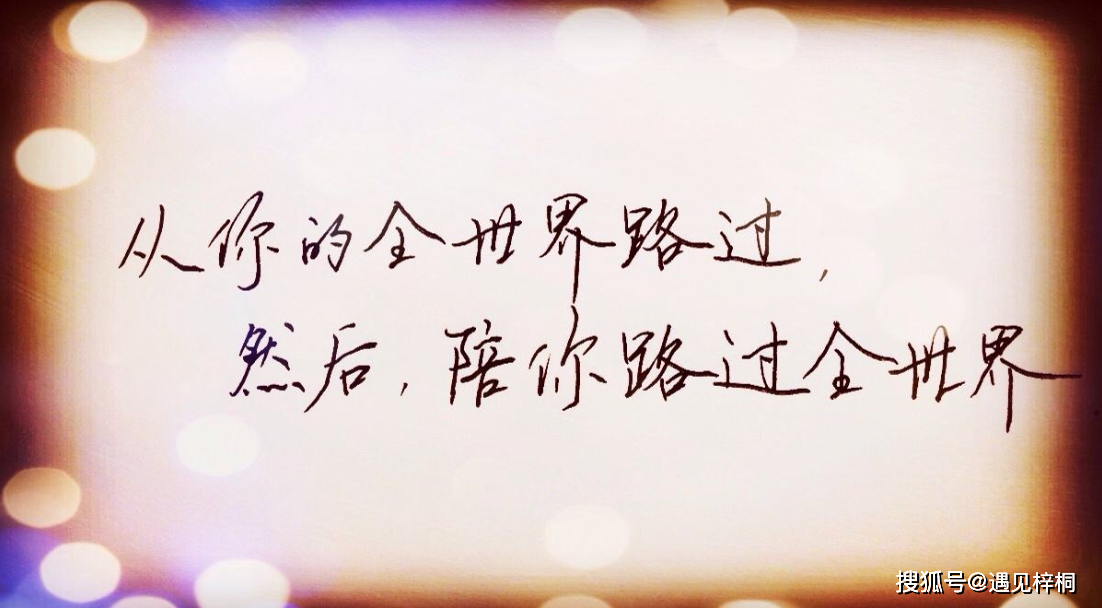 从你的全世界路过,
然后,陪你路过全世界
搜狐号@遇见梓桐